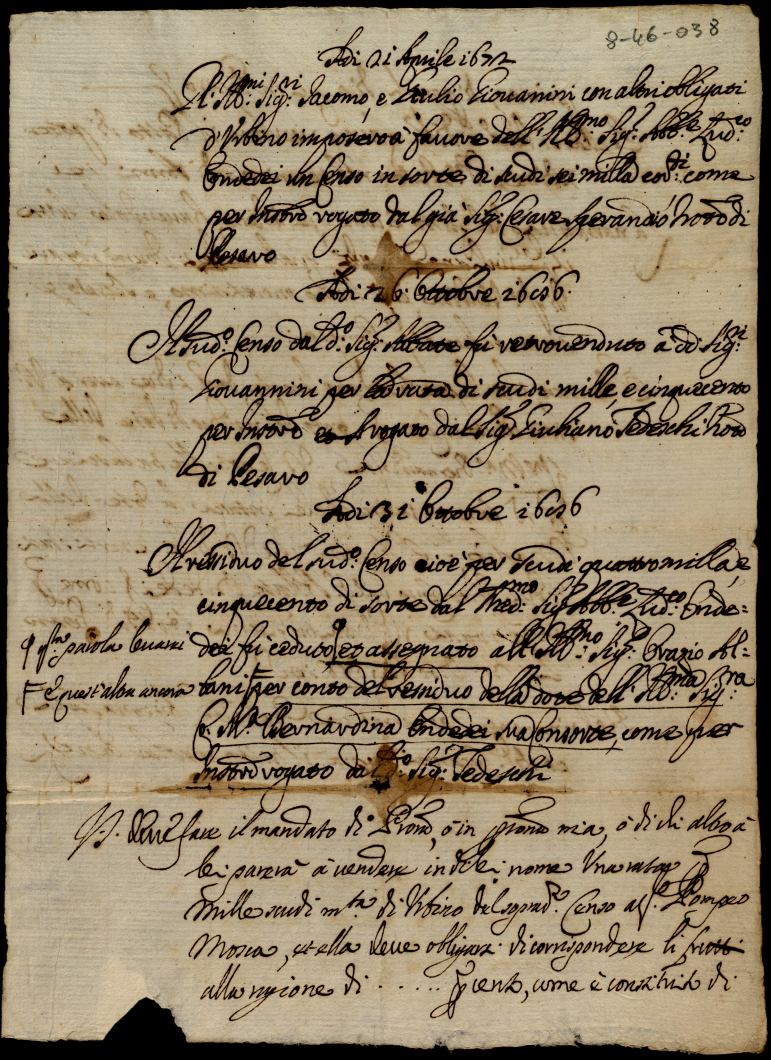 8-46-038
Adi 21 Aprile 1672
Gl'Ill:mi Sig:ri Iacomo, e Giulio Giouannini con altri obligati
d'Vrbino imposero à fauore dell'Ill:mo Sig:r Abb:e Lud:co
Ondedei un Censo in sorte di scudi sei milla cor:di come
per Instro rogato dal già Sig:r Cesare Sperandio Notro di
Pesaro
Adi 26 Ottobre 1686
Il sud:o Censo dal d:o Sig:r Abbate fu retrouenduto à dd: Sig:ri
Giouannini per la rata di scudi mille, e cinquecento
per Instro rogato dal Sig:r Giuliano Tedeschi Notro
di Pesaro
Adi 31 Ottobre 1686
Il residuo del sud:o Censo cioè per scudi quattro milla, e
cinquecento di sorte dal Med:mo Sig:r Abb:e Lud:co Onde-
dei fu ceduto, et assegnato all'Ill:mo Sig:r Orazio Al-
q.sta parola leuarsi
bani per conto del residuo della dote dell'Ill:ma Sig:ra
e quest'altra ancora
C. M.a Bernardina Ondedei sua Consorte, come per
Instro rogato da d:o Sig:r Tedeschi
deue fare il mandato di Proc, ò in persona mia, ò di chi altro à
lei parerà à uendere in di lei nome Una rata
Mille scudi m.ta di Vrbino del soprad:o Censo al S.r Pompeo
Mosca, et ella deue obligarsi di corrispondere li frutti
alla ragione di ...... per cento, come è constituito di